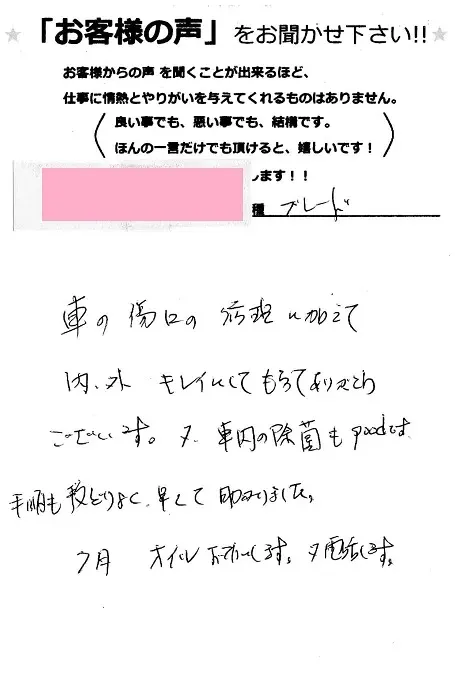 「お客様の声」をお聞かせ下さい!!
お客様からの声を聞くことが出来るほど、
仕事に情熱とやりがいを与えてくれるものはありません。
良い事でも、悪い事でも、結構です。
ほんの一言だけでも頂けると、嬉しいです!
します!!
種 ブレード
車の傷口の 修理に加えて
内、外 キレイにしてもらってありがとう
ございます。又、車内の除菌もgoodです
手順も 段どりよく、早くて 助かりました。
7月 オイルおねがいします。又電話します。